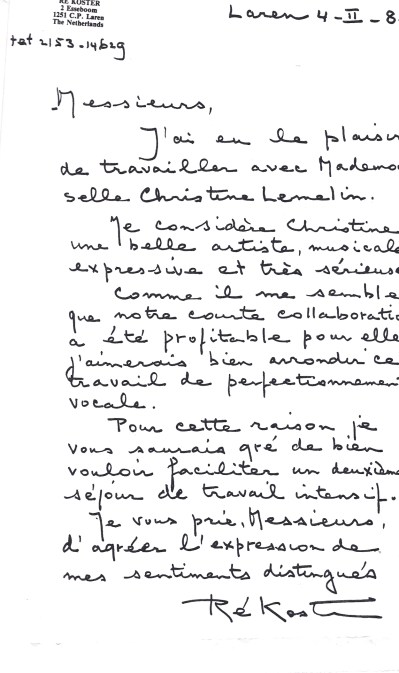 RÉ KOSTER
2 Esseboom
1251 C.P. Laren
The Netherlands
Laren 4-II-8
tet 2153-14629
Messieurs,
J'ai eu le plaisir
de travailler avec Mademo
selle Christine Lemelin.
Je considère Christine
une belle artiste, musicale
expressive et très sérieuse
Comme il me semble
que notre courte collaboratio
a été profitable pour elle
j'aimerais bien arrondir ce
travail de perfectionnement
vocale.
Pour cette raison je
vous saurais gré de bien
vouloir faciliter un deuxième
séjour de travail intensif.
Je vous prie, Messieurs,
d'agréer l'expression de
mes sentiments distingués
Ré Koster